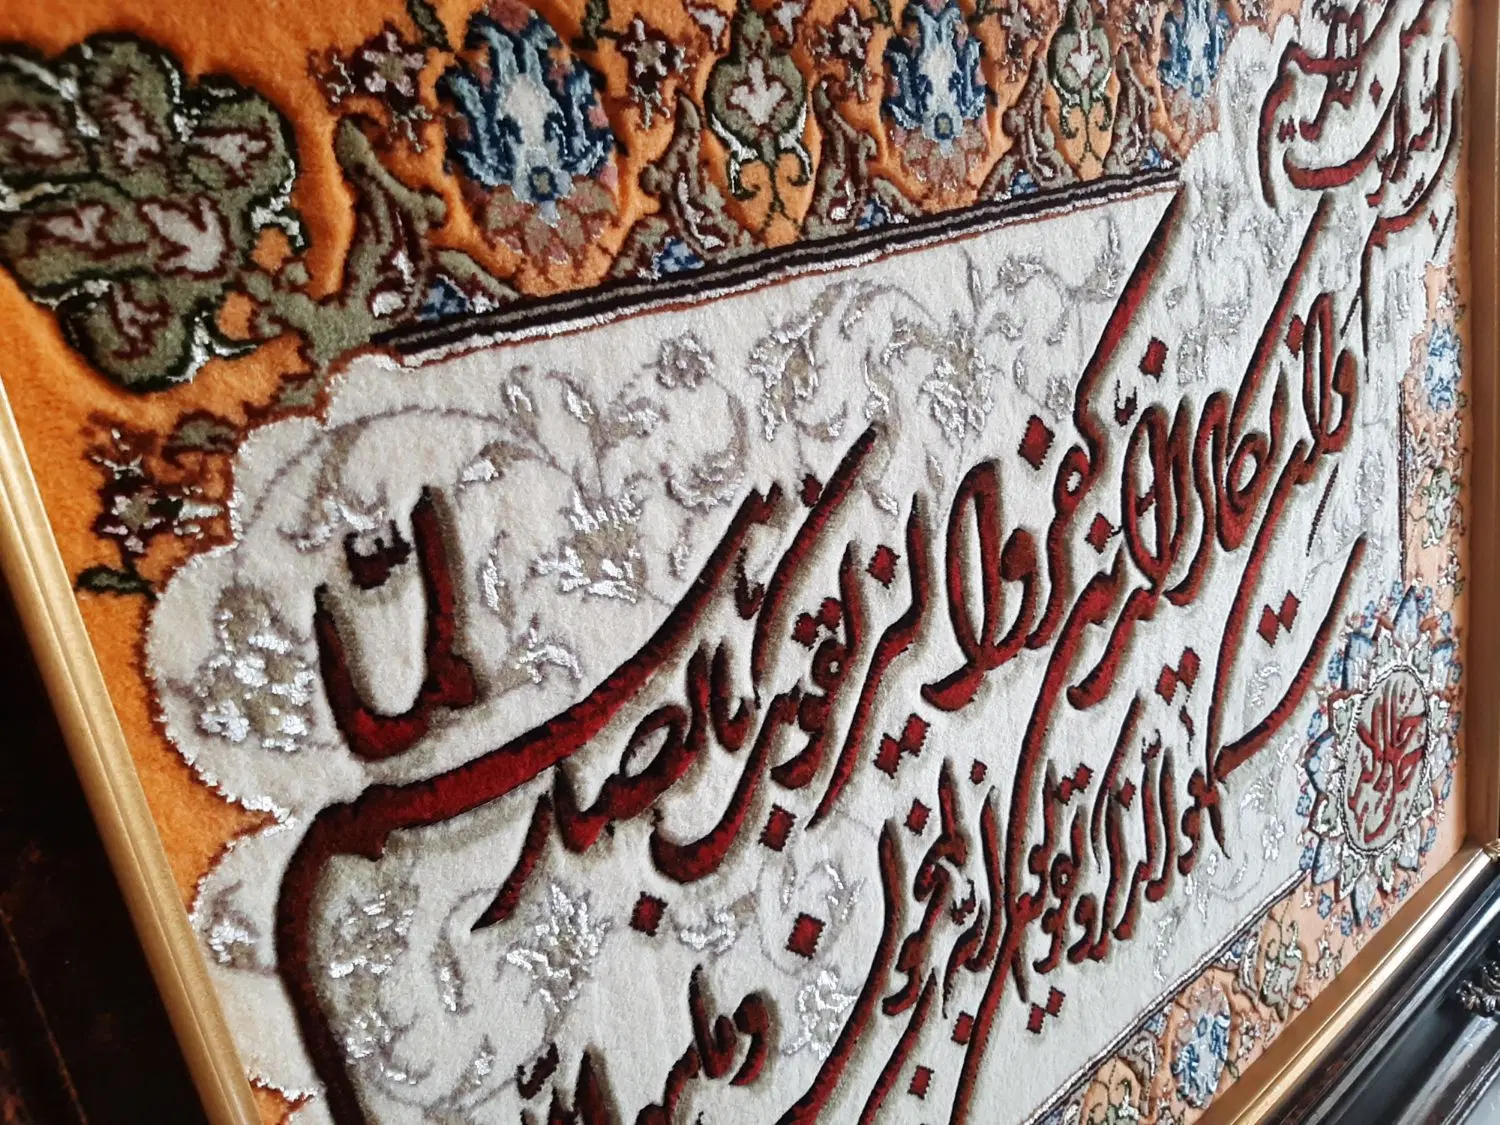 بسم الله الرحمن الرحیم
وان یکاد الذین کفروا لیزلقونک بابصارهم لمّا
سمعوا الذکر و یقولون انه لمجنون
وما هو الا